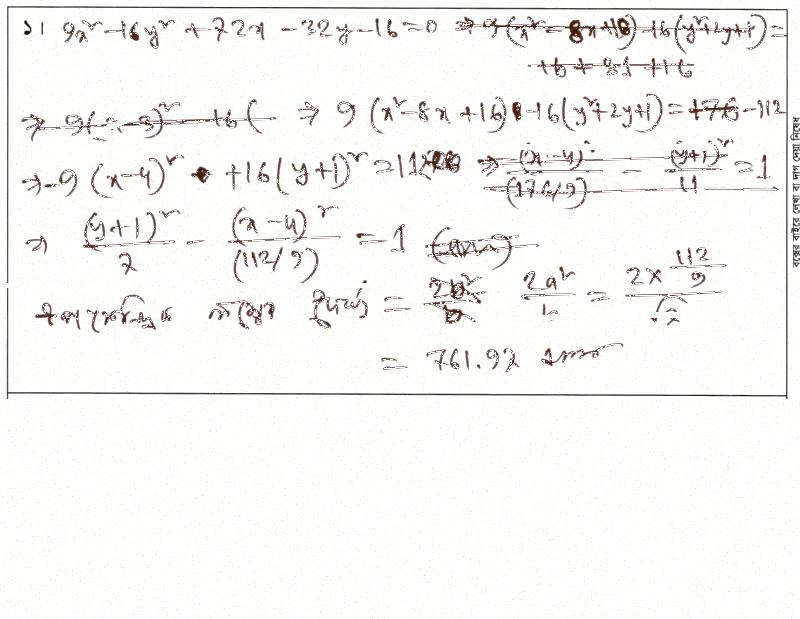 ১। 9x² - 16y² + 72x - 32y - 16 = 0 ⇒ 9(x² - 8x + 16) - 16(y² + 2y + 1) =
16 + 81 + 16
⇒ 9( - 3)² - 16( ⇒ 9 (x² - 8x + 16) - 16(y² + 2y + 1) = 176 - 112
⇒ -9 (x-4)² + 16(y+1)² = 112 ⇒ (x-4)²/(176/9) - (y+1)²/11 = 1
⇒ (y+1)²/7 - (x-4)²/(112/9) = 1 (Ans)
উপকেন্দ্রিক লম্বের দৈর্ঘ্য = 2b² 2a²/b = 2×112/9
= 761.97
বক্সের বাইরে লেখা বা দাগ দেয়া নিষেধ